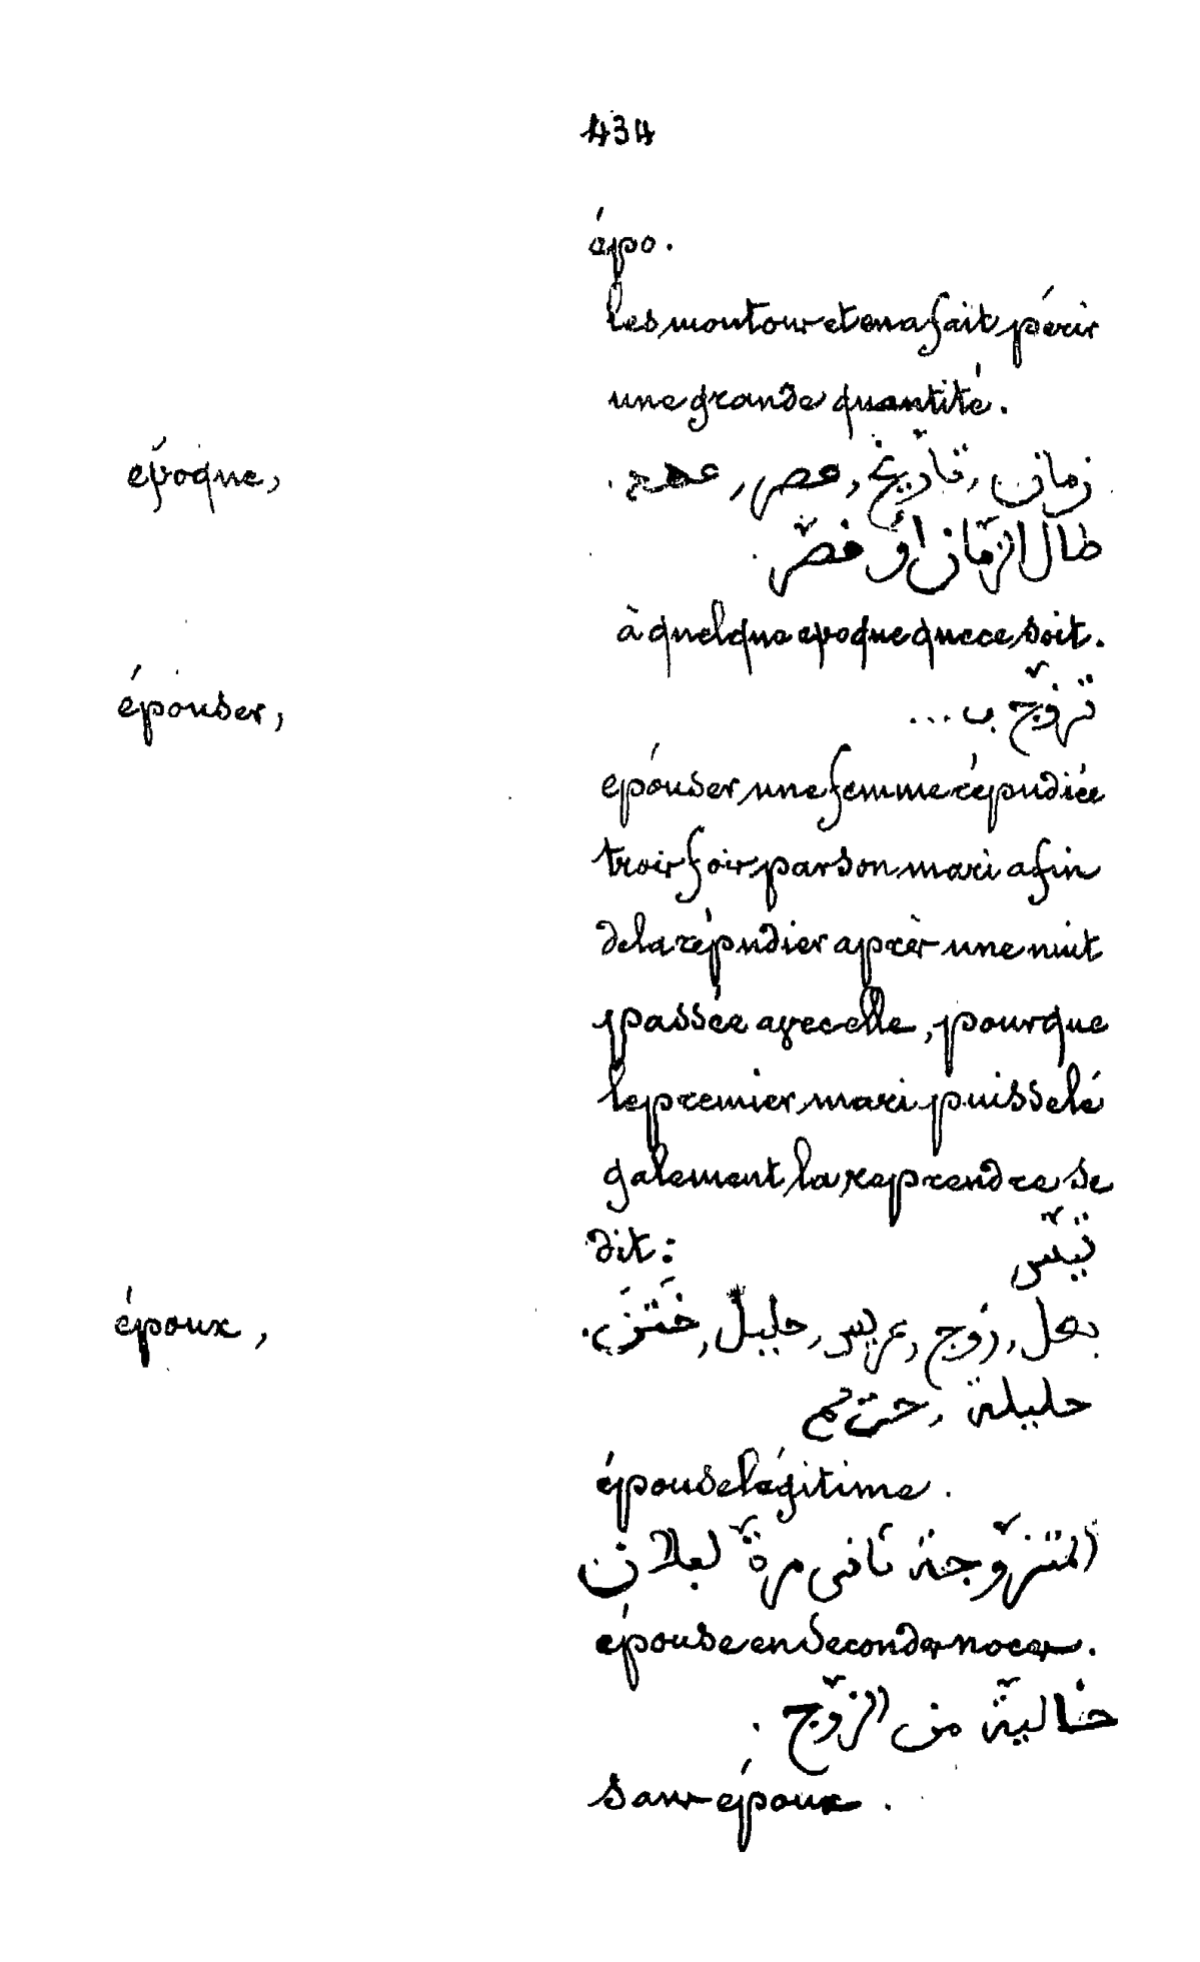 434
épo.
les moutons et en a fait périr
une grande quantité.
époque, زمان, تاريخ, عصر, عهد.
طال الزمان أو قصر.
à quelque époque que ce soit.
épouser, تزوّج ب ...
épouser une femme répudiée
trois fois par son mari afin
de la répudier après une nuit
passée avec elle, pour que
le premier mari puisse lé
galement la reprendre se
dit: تيّس
époux, بعل, زوج, عريس, حليل, خَتَن.
حليلة, حرم
épouse légitime.
المتزوّجة ثاني مرة لعلان
épouse en secondes noces.
خالية من الزوّج.
sans époux.